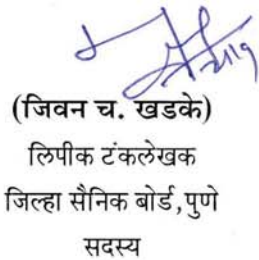 (जिवन च. खडके)
लिपीक टंकलेखक
जिल्हा सैनिक बोर्ड,पुणे
सदस्य